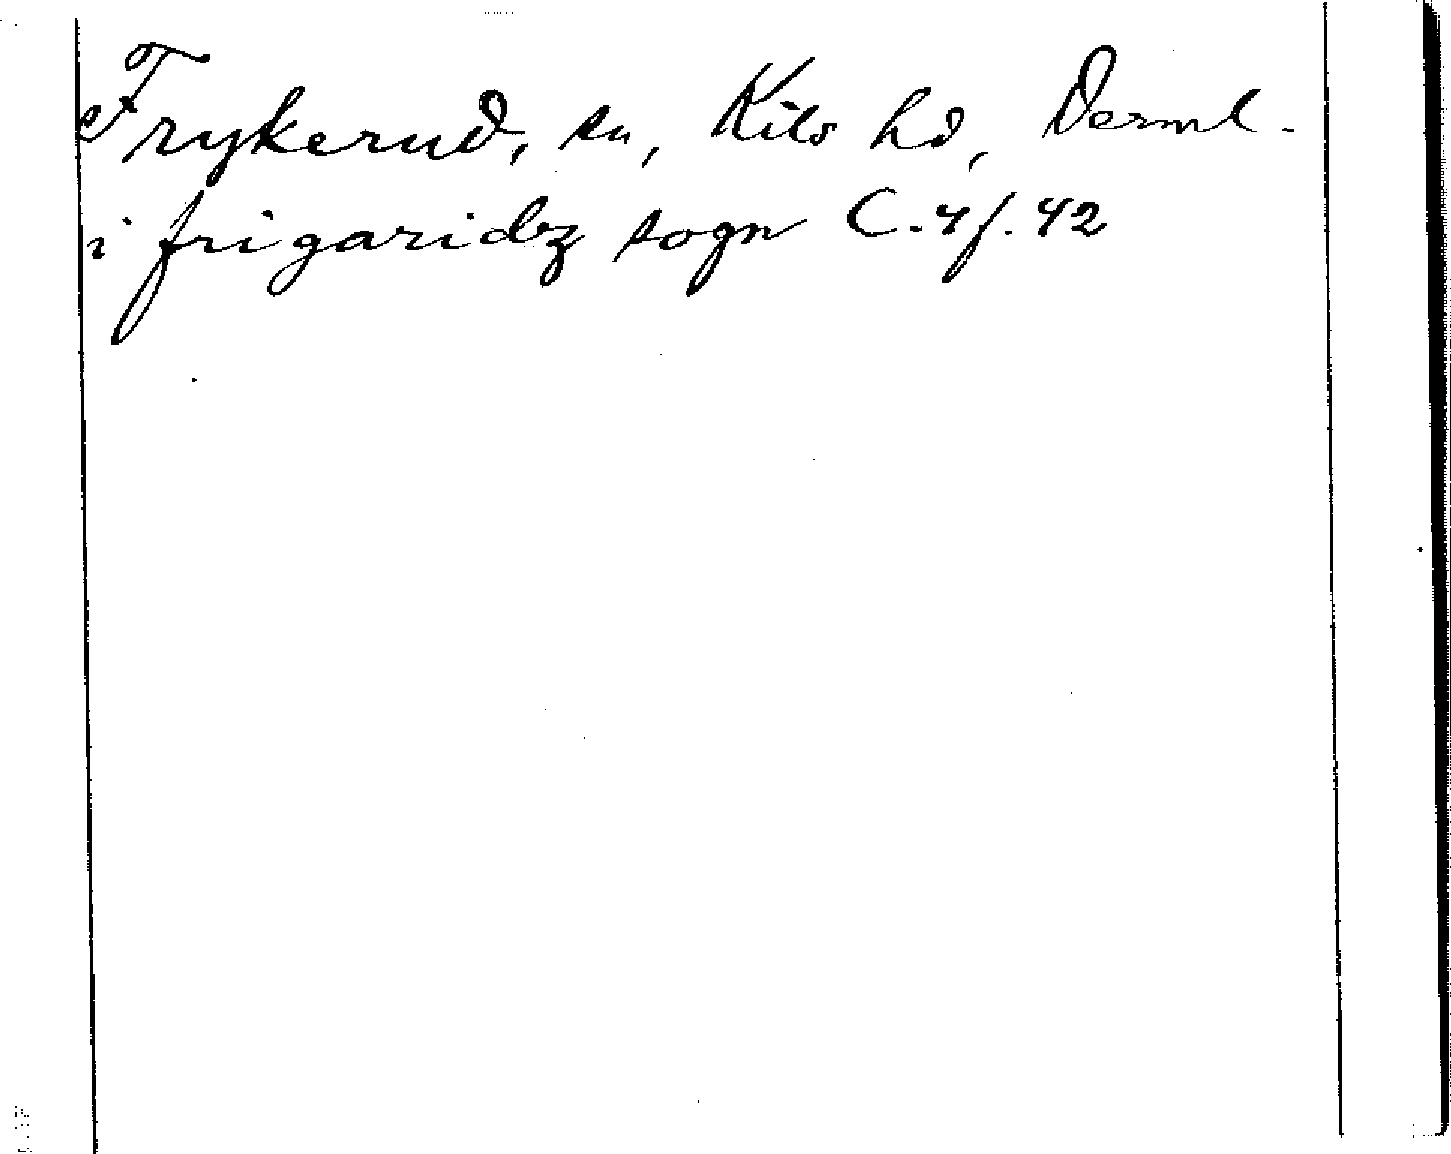 Frykerud, sn, Kils hd, Värml.
i frigaridz sogn C. 4 f. 42